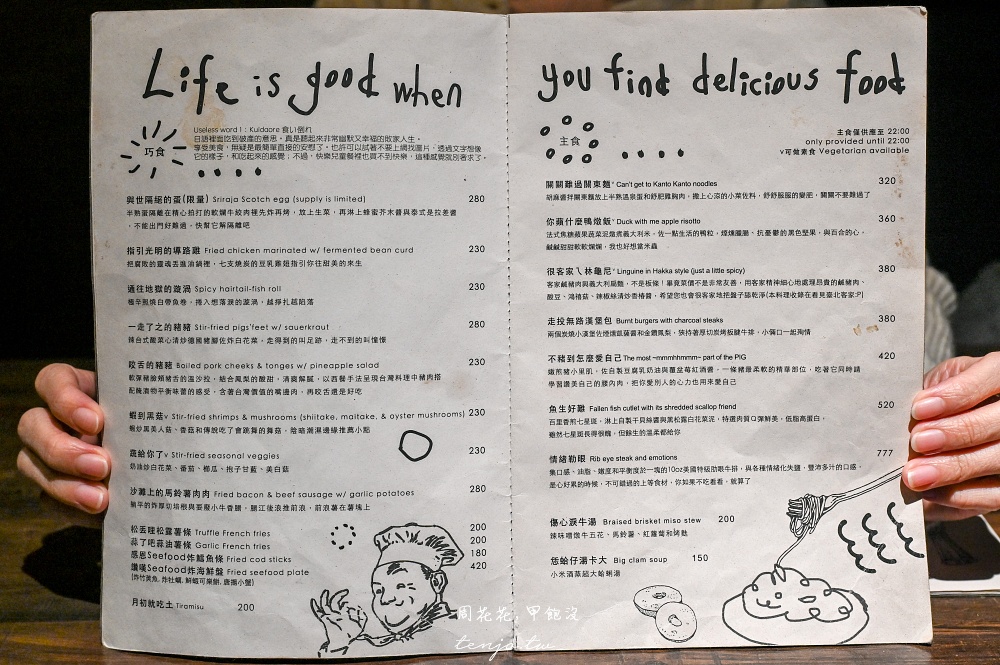 Life is good when
Useless word 1 : Kuidaore 食い倒れ
日語裡面吃到破產的意思。真是聽起來非常幽默又幸福的敗家人生。
享受美食，無疑是最簡單直接的安慰了。也許可以試著不要上網找圖片，透過文字想像
它的樣子，和吃起來的感覺；不過，快樂兒童餐裡也買不到快樂，這種感覺就別奢求了。
巧食
與世隔絕的蛋(限量) Sriraja Scotch egg (supply is limited) 280
半熟蛋隔離在精心拍打的軟嫩牛絞肉裡先炸再烤，放上生菜，再淋上蜂蜜芥末醬與泰式是拉差醬
，不能出門好難過，快幫它解隔離吧
指引光明的導路雞 Fried chicken marinated w/ fermented bean curd 230
把腐敗的靈魂丟進油鍋裡，七支燒炭的豆乳雞翅指引你往甜美的來生
通往地獄的漩渦 Spicy hairtail-fish roll 230
極辛脆燒白帶魚卷，捲入想落淚的漩渦，越掙扎越陷落
一走了之的豬豬 Stir-fried pigs'feet w/ sauerkraut 280
辣台式酸菜心清炒德國豬腳佐炸白花菜，走得到的叫足跡，走不到的叫憧憬
咬舌的豬豬 Boiled pork cheeks & tongues w/ pineapple salad 230
軟彈豬臉頰豬舌的溫沙拉，結合鳳梨的酸甜，清爽解膩，以西餐手法呈現台灣料理中豬肉搭
配醃漬物平衡味蕾的感受，含著台灣價值的嘴邊肉，再咬舌還是好吃
蝦到黑菇v Stir-fried shrimps & mushrooms (shiitake, maitake, & oyster mushrooms) 230
蝦炒黑美人菇、香菇和傳說吃了會跳舞的舞菇，陰暗潮濕邊緣推薦小點
蔬給你了v Stir-fried seasonal veggies 230
奶油炒白花菜、番茄、櫛瓜、抱子甘藍、美白菇
沙灘上的馬鈴薯肉肉 Fried bacon & beef sausage w/ garlic potatoes 280
躺平的炸厚切培根與耍廢小牛香腸，鵝江後浪推前浪，前浪薯在薯塊上
松丟哩松露薯條 Truffle French fries 200
蒜了吧蒜油薯條 Garlic French fries 200
感恩Seafood炸鱈魚條 Fried cod sticks 180
讚嘆Seafood炸海鮮盤 Fried seafood plate 420
(炸竹莢魚, 炸牡蠣, 鮮蝦可樂餅, 唐揚小蟹)
月初就吃土 Tiramisu 200
you find delicious food
主食
主食僅供應至 22:00
only provided until 22:00
v可做素食 Vegetarian available
關關難過關東麵v Can't get to Kanto Kanto noodles 320
胡麻醬拌關東麵放上半熟溫泉蛋和舒肥雞胸肉，撒上心涼的小菜佐料，舒舒服服的變肥，關關不要難過了
你蘋什麼鴨燉飯v Duck with me apple risotto 360
法式焦糖蘋果蔬菜泥燉煮義大利米，佐一點生活的鴨粒，煙燻臘腸、抗憂鬱的黑色堅果，與百合的心，
鹹鹹甜甜軟軟爛爛，我也好想當米蟲
很客家ㄟ林龜尼v Linguine in Hakka style (just a little spicy) 380
客家鹹豬肉與義大利扁麵，不是板條！畢竟菜價不是非常友善，用客家精神細心地處理昂貴的鹹豬肉、
酸豆、鴻禧菇、辣椒絲清炒青椿醬，希望您也會很客家地把盤子舔乾淨(本料理收錄在看見臺北客家:P)
走投無路漢堡包 Burnt burgers with charcoal steaks 380
兩個炭燒小漢堡佐煙燻凱薩醬和金鑽鳳梨，挾持著厚切炭烤板腱牛排，小倆口一起殉情
不豬到怎麼愛自己 The most ~mmmhhmmm~ part of the PIG 420
嫩煎豬小里肌，佐自製豆腐乳奶油與覆盆莓紅酒醬，一條豬最柔軟的精華部位，吃著它同時請
學習讚美自己的腰內肉，把你愛別人的心力也用來愛自己
魚生好難 Fallen fish cutlet with its shredded scallop friend 520
百里香煎七星斑，淋上自製干貝絲醬與黑松露白花菜泥，特選肉質Q彈鮮美，低脂高蛋白，
雖然七星斑長得很醜，但餘生的溫柔都給你
情緒勒眼 Rib eye steak and emotions 777
集口感、油脂、嫩度和平衡度於一塊的10oz美國特級肋眼牛排，與各種情緒化夾鹽，豐沛多汁的口感，
是心好累的時候，不可錯過的上等食材，你如果不吃看看，就算了
傷心淚牛湯 Braised brisket miso stew 200
辣味噌燉牛五花、馬鈴薯、紅蘿蔔和烤麩
恁蛤仔湯卡大 Big clam soup 150
小米酒蒸超大蛤蜊湯
周花花,甲飽沒
tenjo.tw